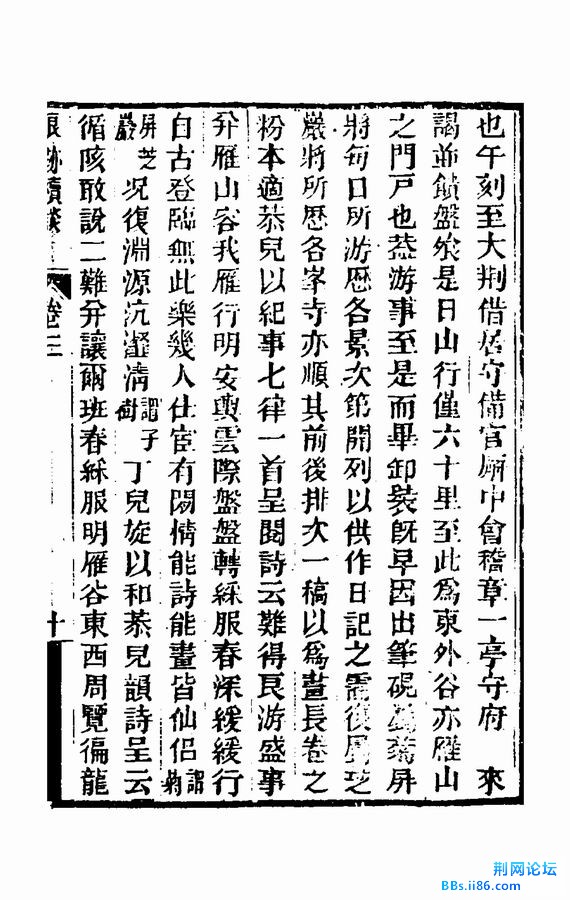 也午刻至大荆借居守備官廟中會稽章一亭守府 來
謁並饋盤飧是日山行僅六十里至此爲東外谷亦雁山
之門戶也茲游事至是而畢卸裝旣早因出筆硯屏
將每日所游歷各景次第開列以供作日記之需復屬芝
巖將所歷各峯寺亦順其前後排次一稿以爲畫長卷之
粉本適恭兒以紀事七律一首呈閱詩云難得良游盛事
幷雁山容我雁行明安輿雲際盤盤轉綵服春深緩緩行
自古登臨無此樂幾人仕宦有閒情能詩能畫皆仙侶謂
屏芝巖況復淵源沆瀣淸謂子樹丁兒旋以和恭兒韻詩呈云
循陔敢說二難幷讓爾班春綵服明雁谷東西周覽徧龍
浪跡續談 卷二 十
荆网论坛
BBs.ii86.com